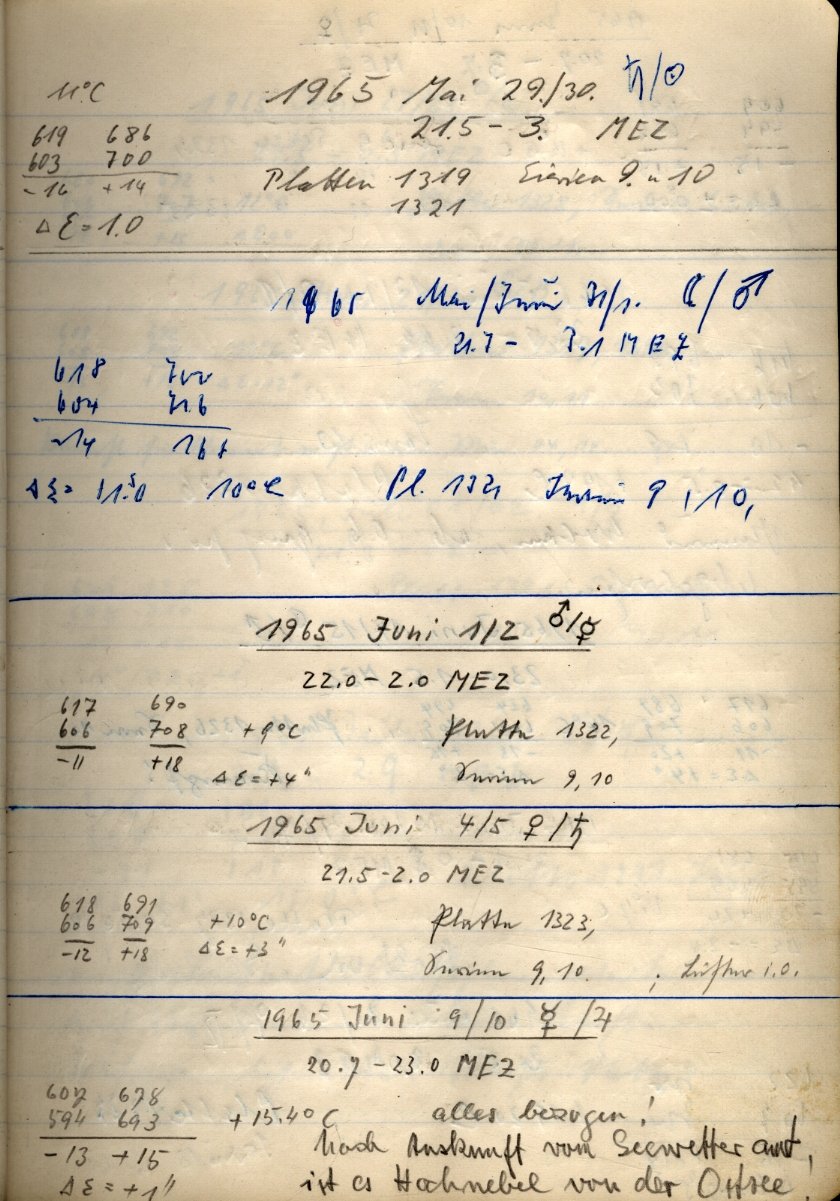 11°C
1965 Mai 29./30. ♄/☉
21.5 – 3. MEZ
619 686
603 700
-16 +14
Platten 1319 Serien 9. u 10
1321
Δε = 1.0
1965 Mai/Juni 31/1. ☾/♂
21.7 – 3.1 MEZ
618 700
604 716
-14 16
Δε = 10°C Pl. 1321 Serien 9, 10,
1965 Juni 1/2 ♂/☿
22.0 – 2.0 MEZ
617 690
606 708 +9°C Platte 1322,
-11 +18 Δε = +4" Serien 9, 10
1965 Juni 4/5 ♀/♄
21.5 - 2.0 MEZ
618 691
606 709 +10°C Platte 1323,
-12 +18 Δε = +3"
Serien 9, 10. ; Lüfter i.O.
1965 Juni 9/10 ☿/♃
20.7 – 23.0 MEZ
607 678
594 693 +15.4°C alles bezogen!
-13 +15 Nach Auskunft vom Seewetteramt,
Δε = +1" ist es Hochnebel von der Ostsee.